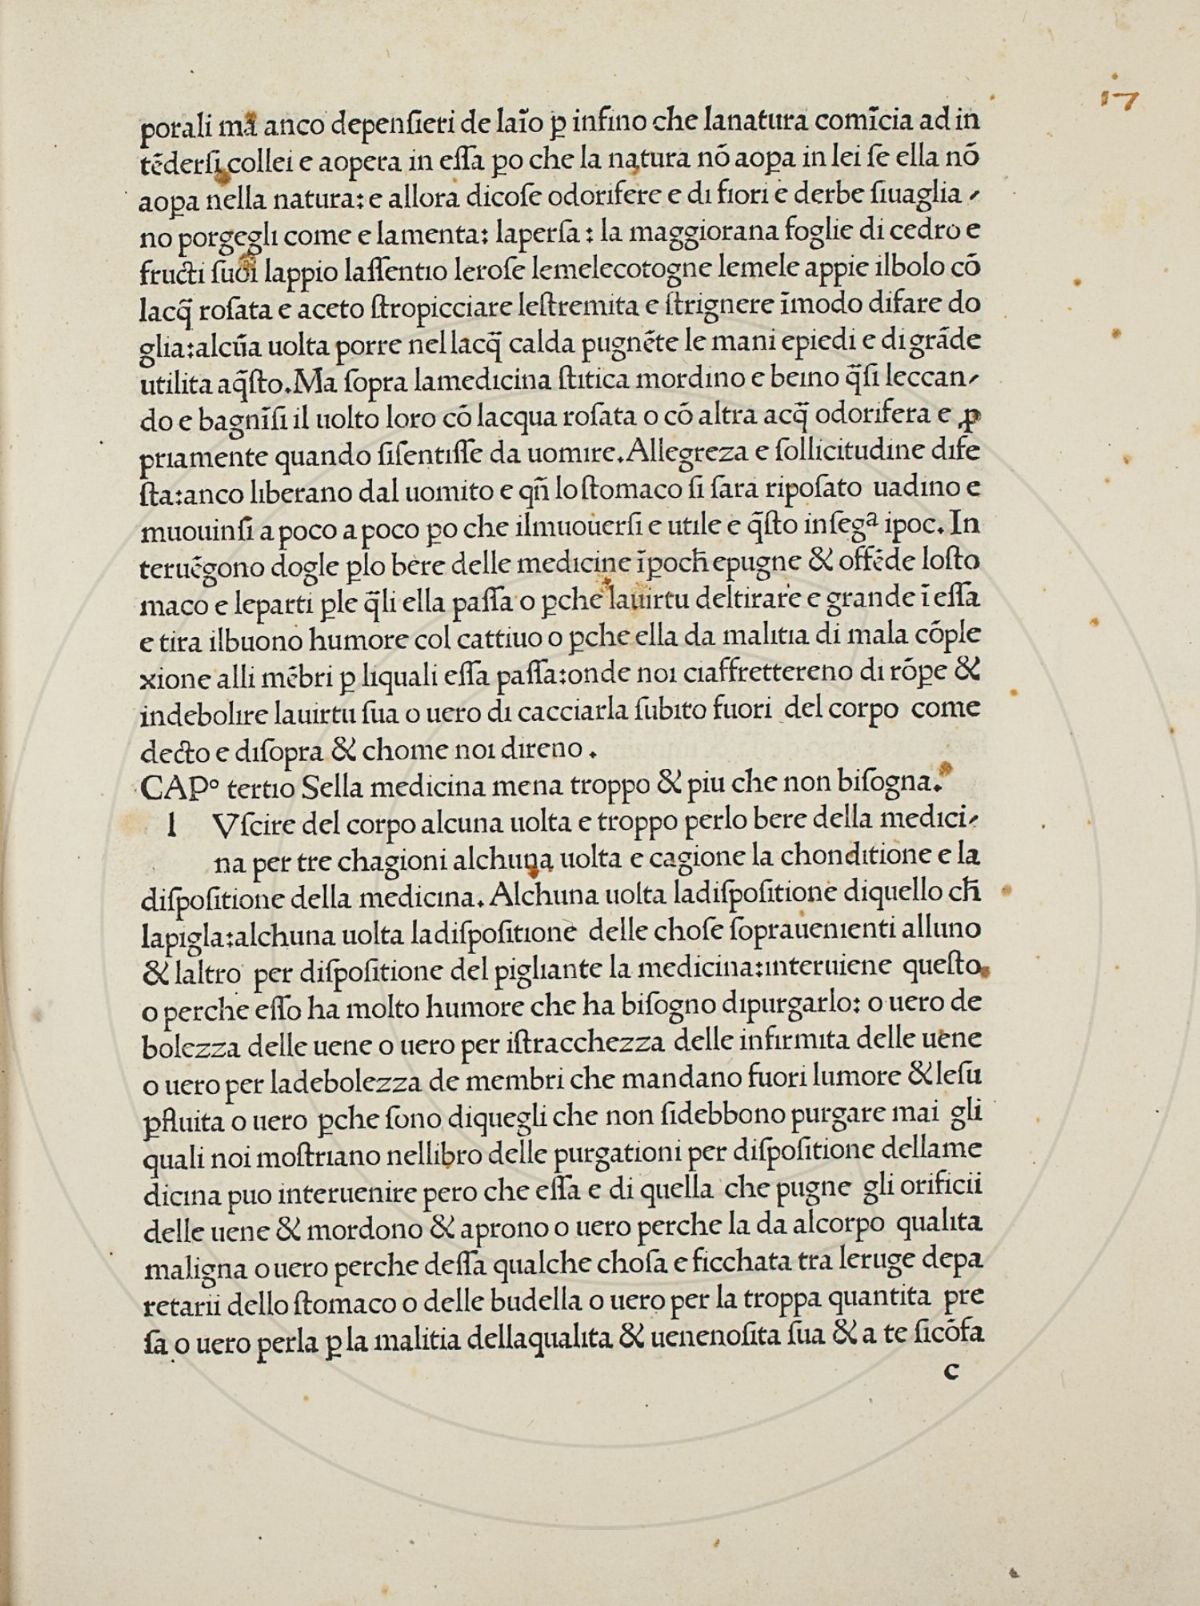 17
porali ma anco depenſieri de laīo ꝑ inſino che lanatura comīcia ad in
tēderſi collei e aopera in eſſa ꝑo che la natura nō aoꝑa in lei ſe ella nō
aoꝑa nella natura: e allora dicoſe odorifere e di fiori e derbe ſiuaglia⸗
no porgegli come e lamenta: laperſa: la maggiorana foglie di cedro e
fructi ſuoi lappio laſſentio leroſe lemelecotogne lemele appie ilbolo cō
lacq̄ roſata e aceto ſtropicciare leſtremita e ſtrignere īmodo difare do
glia:alcūa uolta porre nellacq̄ calda pugnēte le mani epiedi e di grāde
utilita aq̄ſto. Ma ſopra lamedicina ſtitica mordino e beino q̄ſi leccan⸗
do e bagnīſi il uolto loro cō lacqua roſata o cō altra acq̄ odorifera e ꝓ
priamente quando ſiſentiſſe da uomire. Allegreza e ſollicitudine dife
ſta:anco liberano dal uomito e qn̄ lo ſtomaco ſi ſara ripoſato uadino e
muouinſi a poco a poco ꝑo che ilmuouerſi e utile e q̄ſto inſegᵃ ipoc. In
teruēgono dogle ꝑlo bere delle medicine īꝑoch̄ epugne & offēde loſto
maco e leparti ꝑle q̄li ella paſſa o ꝑche lauirtu deltirare e grande ī eſſa
e tira ilbuono humore col cattiuo o ꝑche ella da malitia di mala cōple
xione alli mēbri ꝑ liquali eſſa paſſa:onde noi ciaffrettereno di rōpe &
indebolire lauirtu ſua o uero di cacciarla ſubito fuori del corpo come
decto e diſopra & chome noi direno.
CAPº tertio Sella medicina mena troppo & piu che non biſogna.
l Vſcire del corpo alcuna uolta e troppo perlo bere della medici⸗
na per tre chagioni alchuna uolta e cagione la chonditione e la
diſpoſitione della medicina. Alchuna uolta ladiſpoſitione diquello ch̄
lapigla:alchuna uolta ladiſpoſitione delle choſe ſoprauenienti alluno
& laltro per diſpoſitione del pigliante la medicina:interuiene queſto
o perche eſſo ha molto humore che ha biſogno dipurgarlo: o uero de
bolezza delle uene o uero per iſtracchezza delle infirmita delle uene
o uero per ladebolezza de membri che mandano fuori lumore & leſu
ꝑfluita o uero ꝑche ſono diquegli che non ſidebbono purgare mai gli
quali noi moſtriano nellibro delle purgationi per diſpoſitione dellame
dicina puo interuenire pero che eſſa e di quella che pugne gli orificii
delle uene & mordono & aprono o uero perche la da alcorpo qualita
maligna o uero perche deſſa qualche choſa e ficchata tra leruge depa
retarii dello ſtomaco o delle budella o uero per la troppa quantita pre
ſa o uero perla ꝑ la malitia dellaqualita & uenenoſita ſua & a te ſicōfa
c